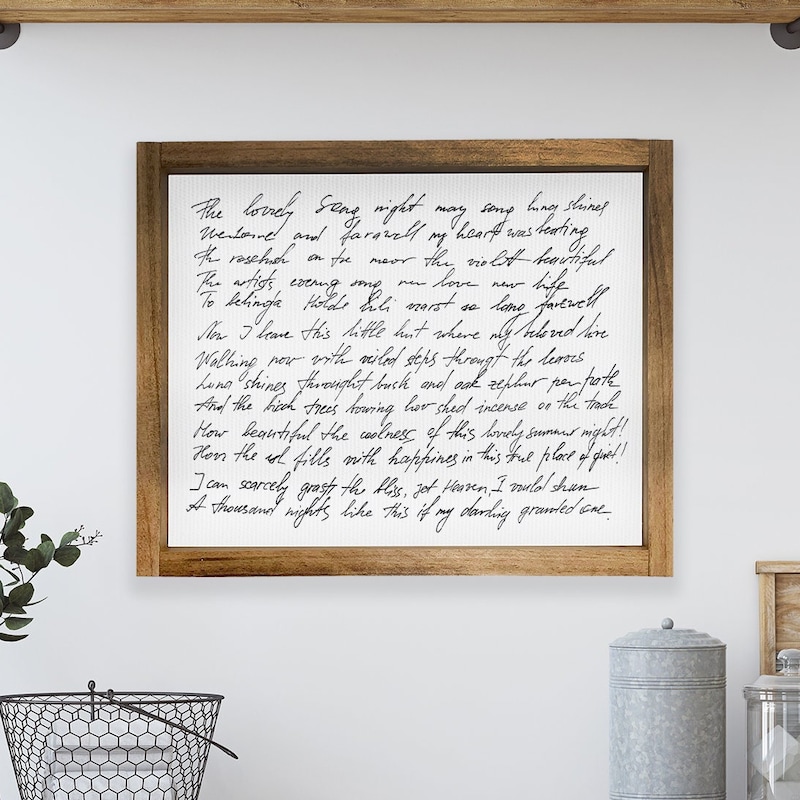 The lovely Song night may song luna shines
Welcome and farewell my heart was beating
The rosebush on the moor the violett beautiful
The artists evening song new love new life
To belinda Holde Lili warst so long farewell
Now I leave this little hut where my beloved live
Walking now with veiled steps througt the leaves
Luna shines throught bush and oak zephur per path
And the birch trees bowing low shed incense on the track
How beautiful the coolness of this lovely summer night!
How the soul fills with happines in this true place of quiet!
I can scarcely grasp the bliss, yet Heaven, I would shun
A thousand nights like this if my darling granted one.